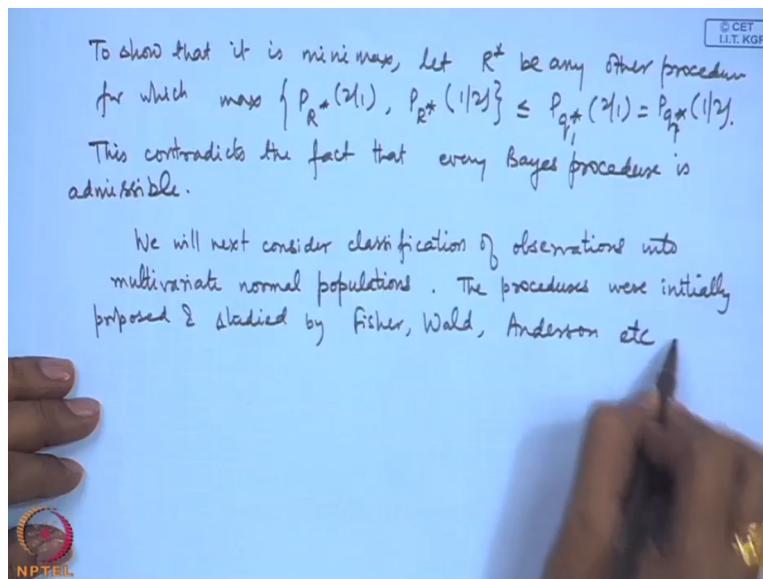 © CET
I.I.T. KGP
To show that it is minimax, let R* be any other procedure
for which max { P_R* (2/1), P_R* (1/2) } ≤ P_q₁* (2/1) = P_q₁* (1/2).
This contradicts the fact that every Bayes procedure is
admissible.
We will next consider classification of observations into
multivariate normal populations. The procedures were initially
proposed & studied by Fisher, Wald, Anderson etc
NPTEL